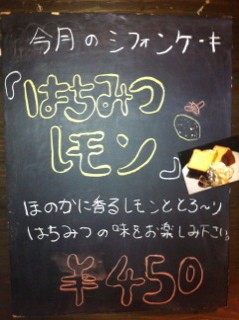 今月のシフォンケーキ
『はちみつ
レモン』
ほのかに香るレモンととろ〜り
はちみつの味をお楽しみ下さい。
¥450